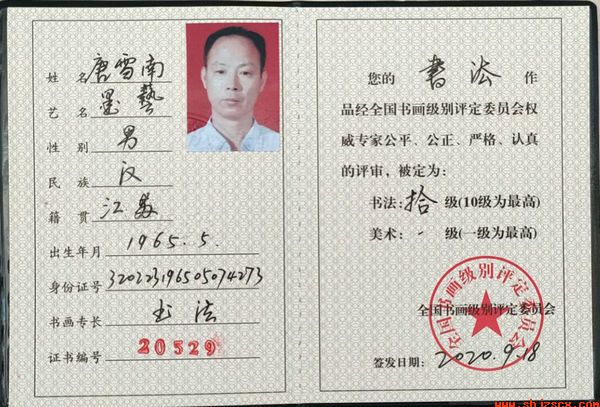 姓名 唐雪南
艺名 墨藝
性别 男
民族 汉
籍贯 江苏
出生年月 1965.5.
身份证号 320223196505074273
书画专长 书法
证书编号 20529
您的 書法 作
品经全国书画级别评定委员会权
威专家公平、公正、严格、认真
的评审，被定为：
书法：拾 级(10级为最高)
美术：- 级(一级为最高)
全国书画级别评定委员会
全国书画级别评定委员会
签发日期：2020.9.18
www.sbjzscx.com